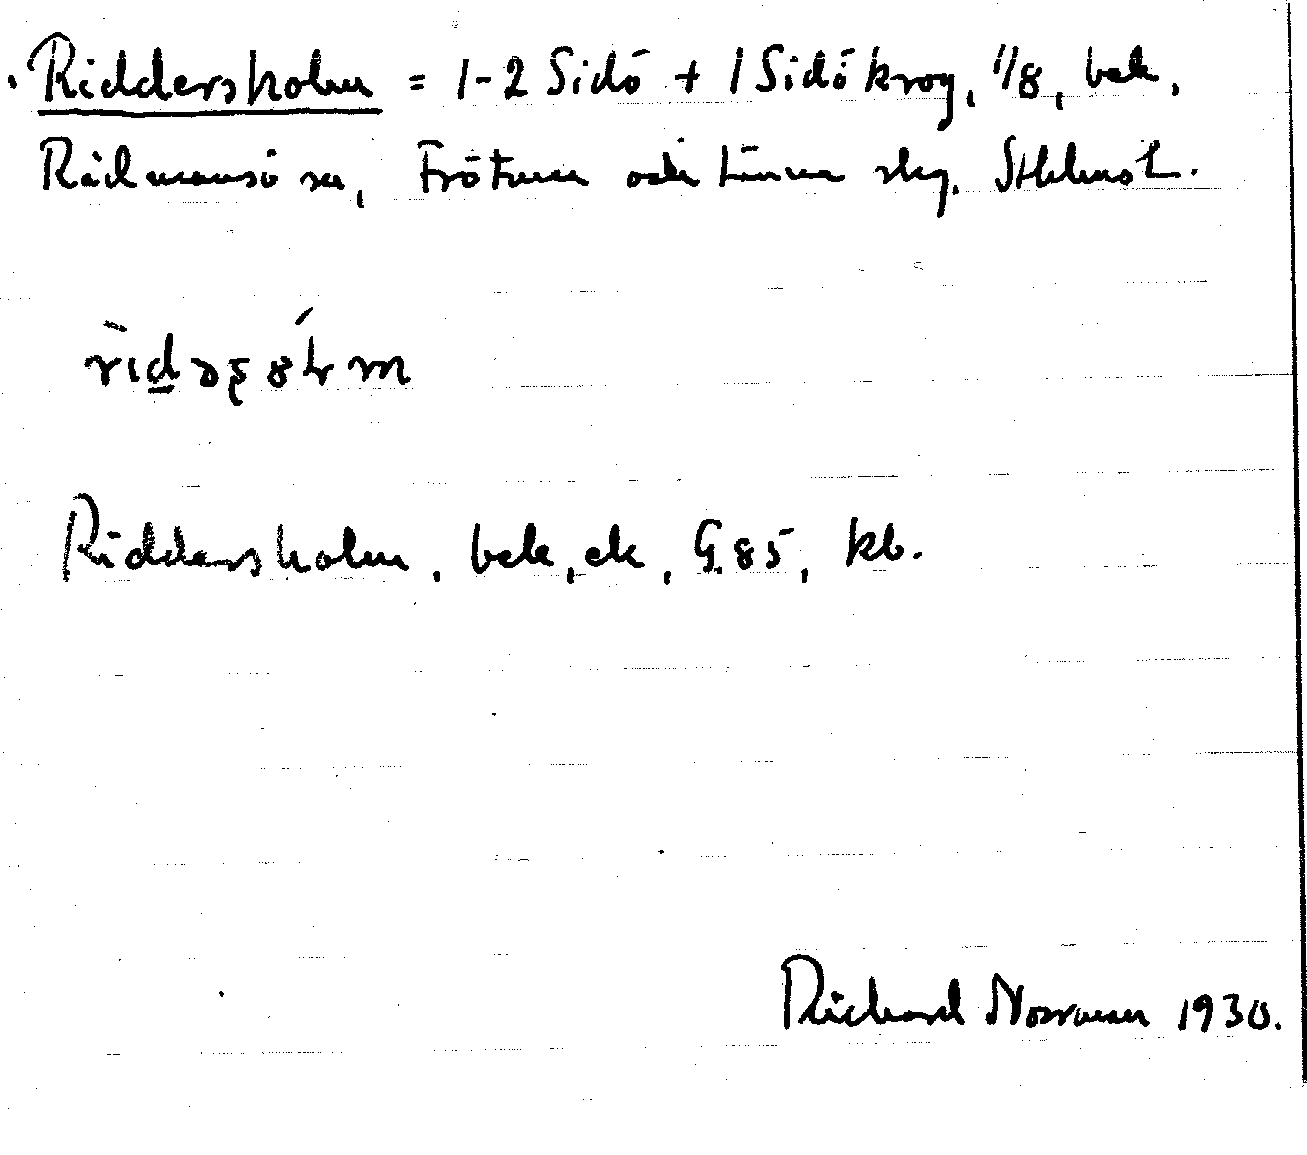 Riddersholm = 1-2 Sidö + 1 Sidökrog, 1/8, bek,
Rådmansö sn, Frötuna och Länna skg. Sthlms l.
Riddersholm, bek, ek, G.85, kb.
Richard Norrman 1930.